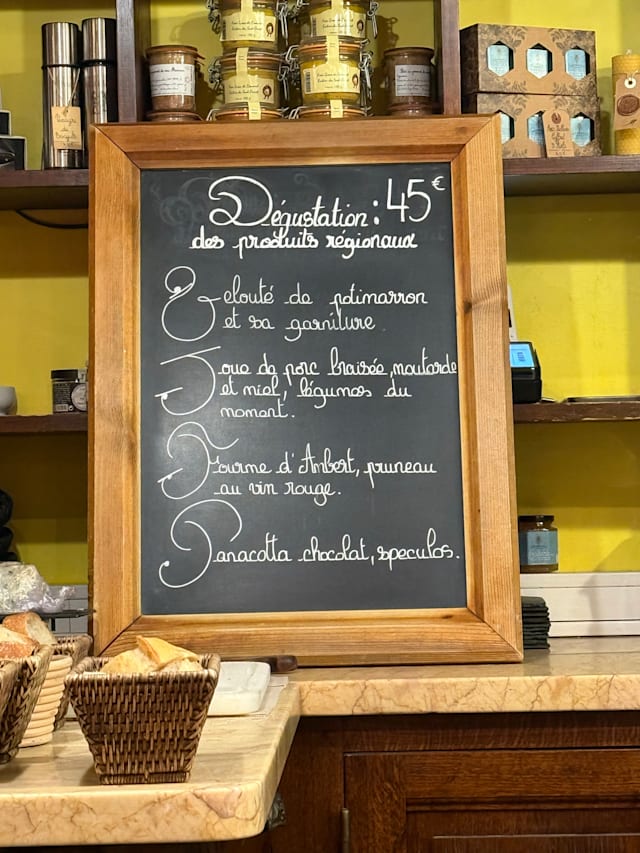 Dégustation : 45€
des produits régionaux
Velouté de potimarron
et sa garniture
Joue de porc braisée, moutarde
et miel, légumes du
moment.
Fourme d'Ambert, pruneau
au vin rouge.
Panacotta chocolat, speculos.